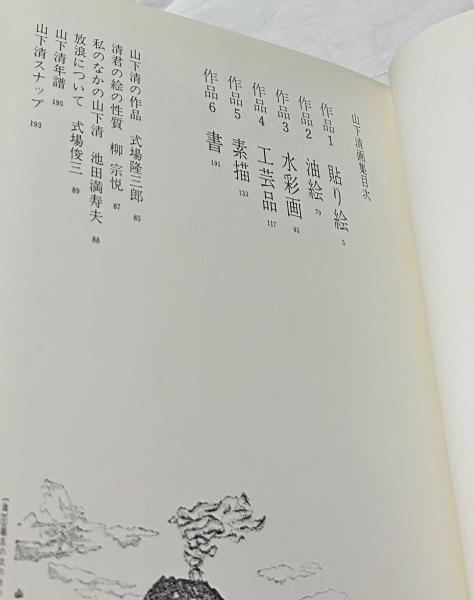 山下清画集目次
作品1 貼り絵 5
作品2 油絵 79
作品3 水彩画 93
作品4 工芸品 117
作品5 素描 133
作品6 書 191
山下清の作品 式場隆三郎 85
清君の絵の性質 柳宗悦 87
私のなかの山下清 池田満寿夫 88
放浪について 式場俊三 89
山下清年譜 195
山下清スナップ 193